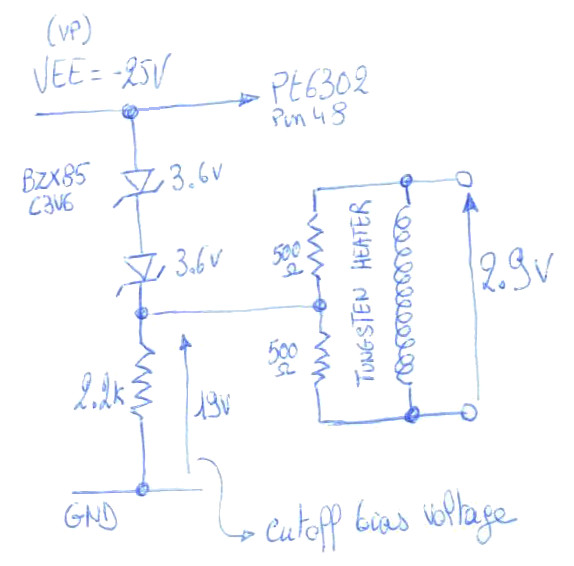 (VP)
VEE = -25V
Pt6302
Pin 48
BZX85
C3V6
3.6V
3.6V
500
Ω
500
Ω
TUNGSTEN HEATER
2.9V
2.2k
19V
GND
cutoff bias voltage